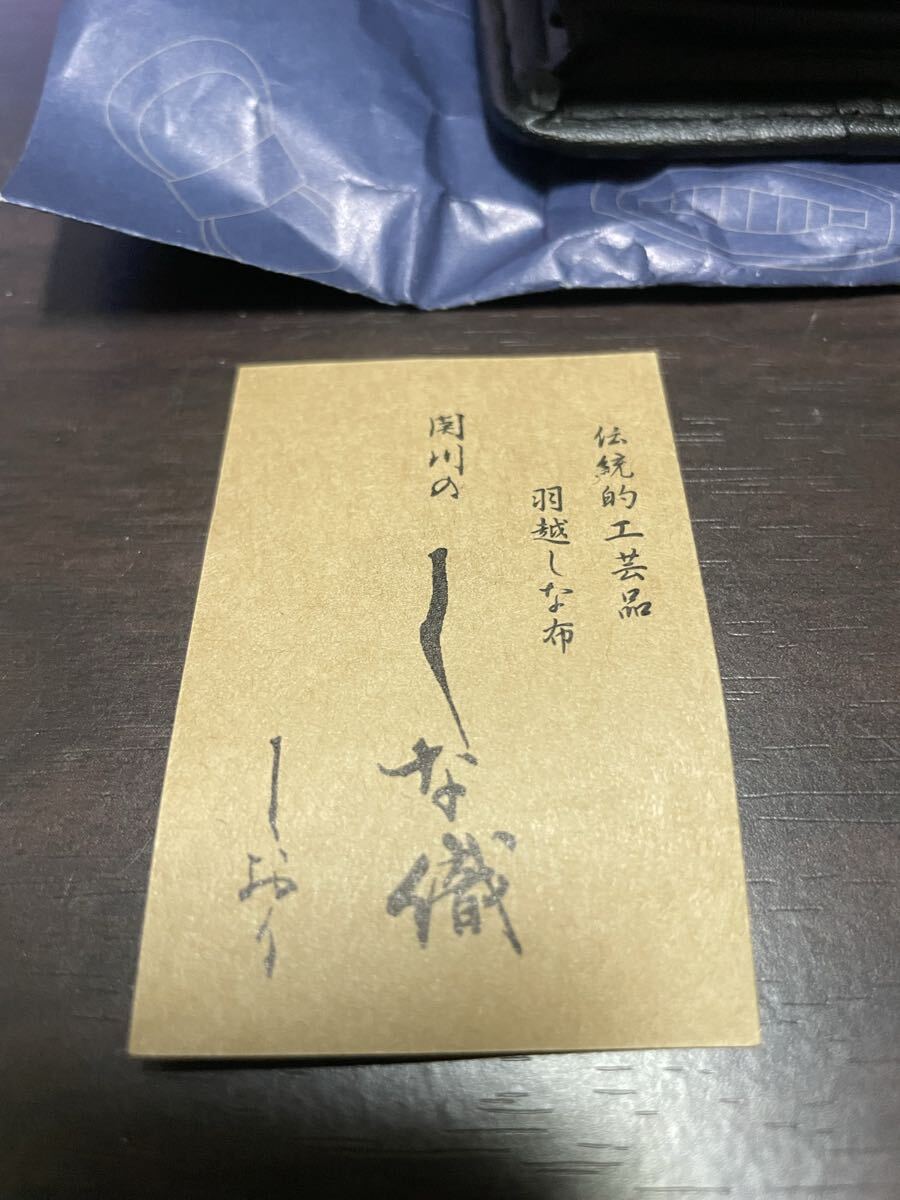 伝統的工芸品
羽越しな布
関川の
しな織
しおり